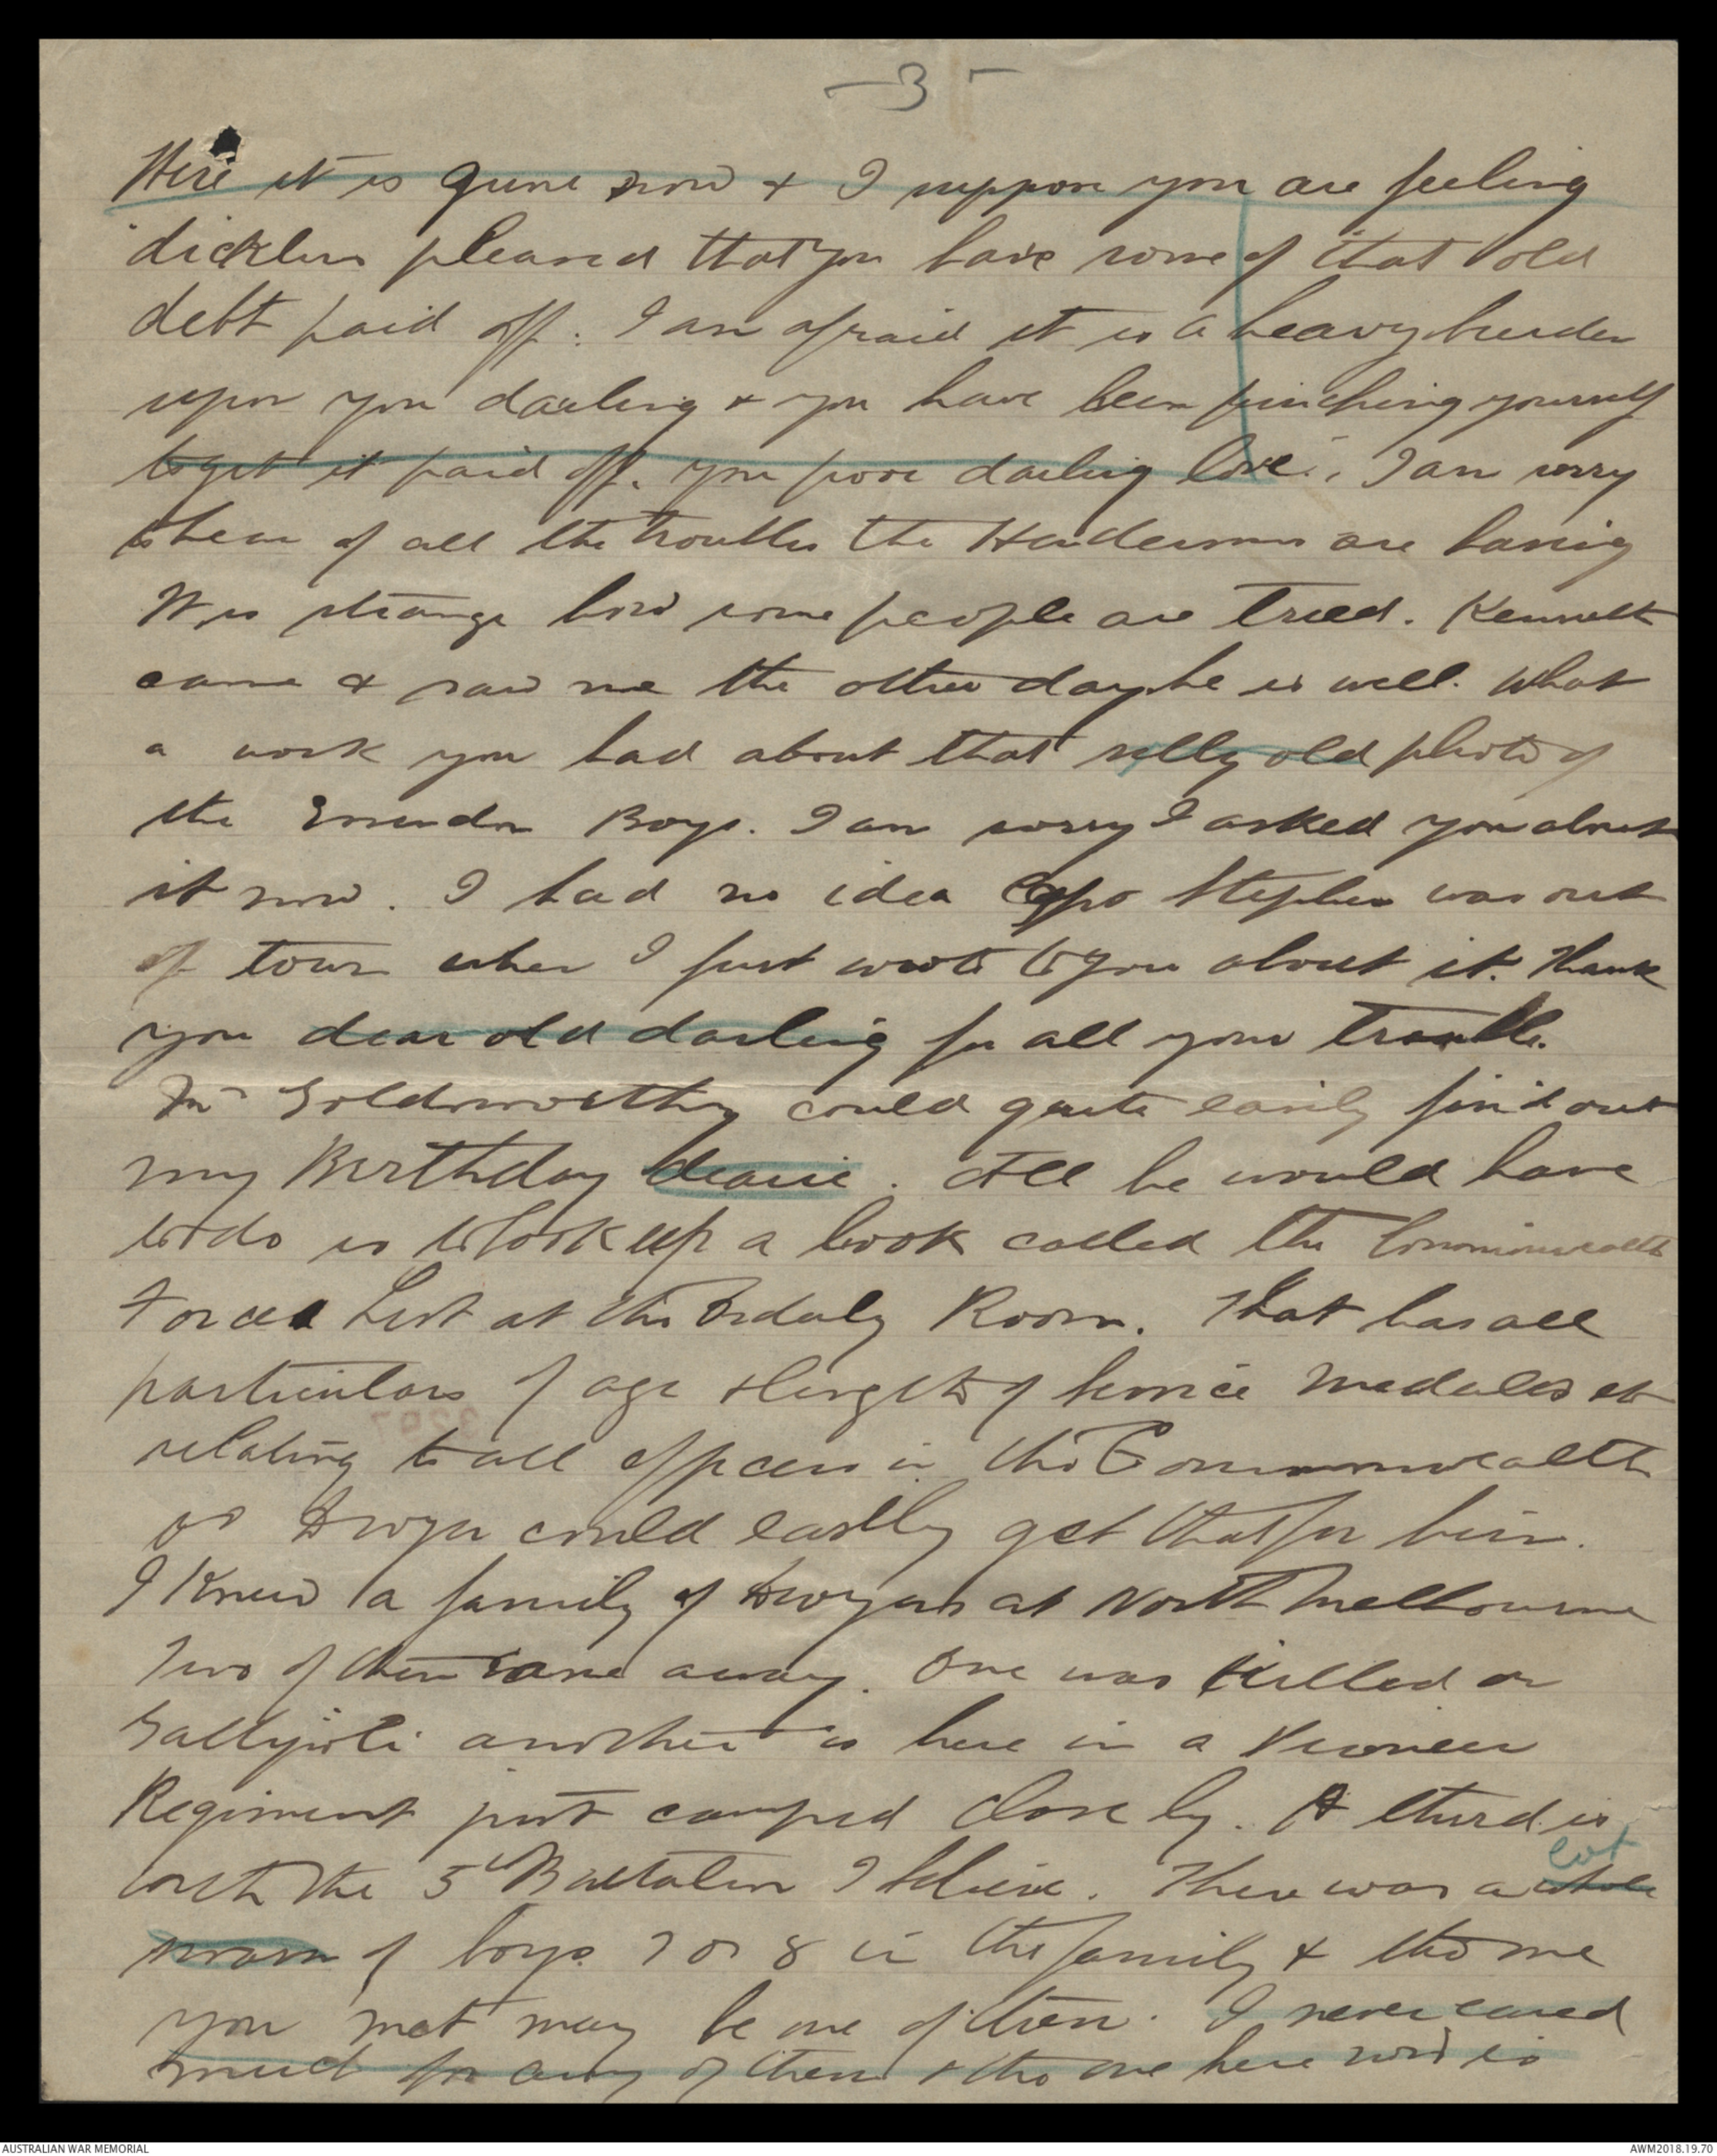 -3-
Here it is June now & I suppose you are feeling
dickens pleased that you have some of that old
debt paid off. I am afraid it is a heavy burden
upon you darling & you have been pinching yourself
to get it paid off, you poor darling love. I am sorry
to hear of all the troubles the Hendersons are having
It is strange how some people are tried. Kenneth
came & saw me the other day he is well. What
a work you had about that silly old photo of
the Essendon Boys. I am sorry I asked you about
it now. I had no idea Stephen was out
of town when I first wrote to you about it. Thank
you dear old darling for all your trouble.
Mr Goldsworthy could quite easily find out
my Birthday dearie. All he would have
to do is to look up a book called the Commonwealth
Forces List at the Orderly Room. That has all
particulars of age & length of service medals etc
relating to all officers in the Commonwealth
so Dwyer could easily get that for him.
I knew a family of Dwyers at North Melbourne
Two of them came away. One was killed on
Gallipoli another is here in a Pioneer
Regiment just camped close by. A third is
with the 5th Battalion I believe. There was a whole lot
swarm of boys 7 or 8 in the family & the one
you met may be one of them. I never cared
much for any of them & the one here now is
AUSTRALIAN WAR MEMORIAL
AWM2018.19.70